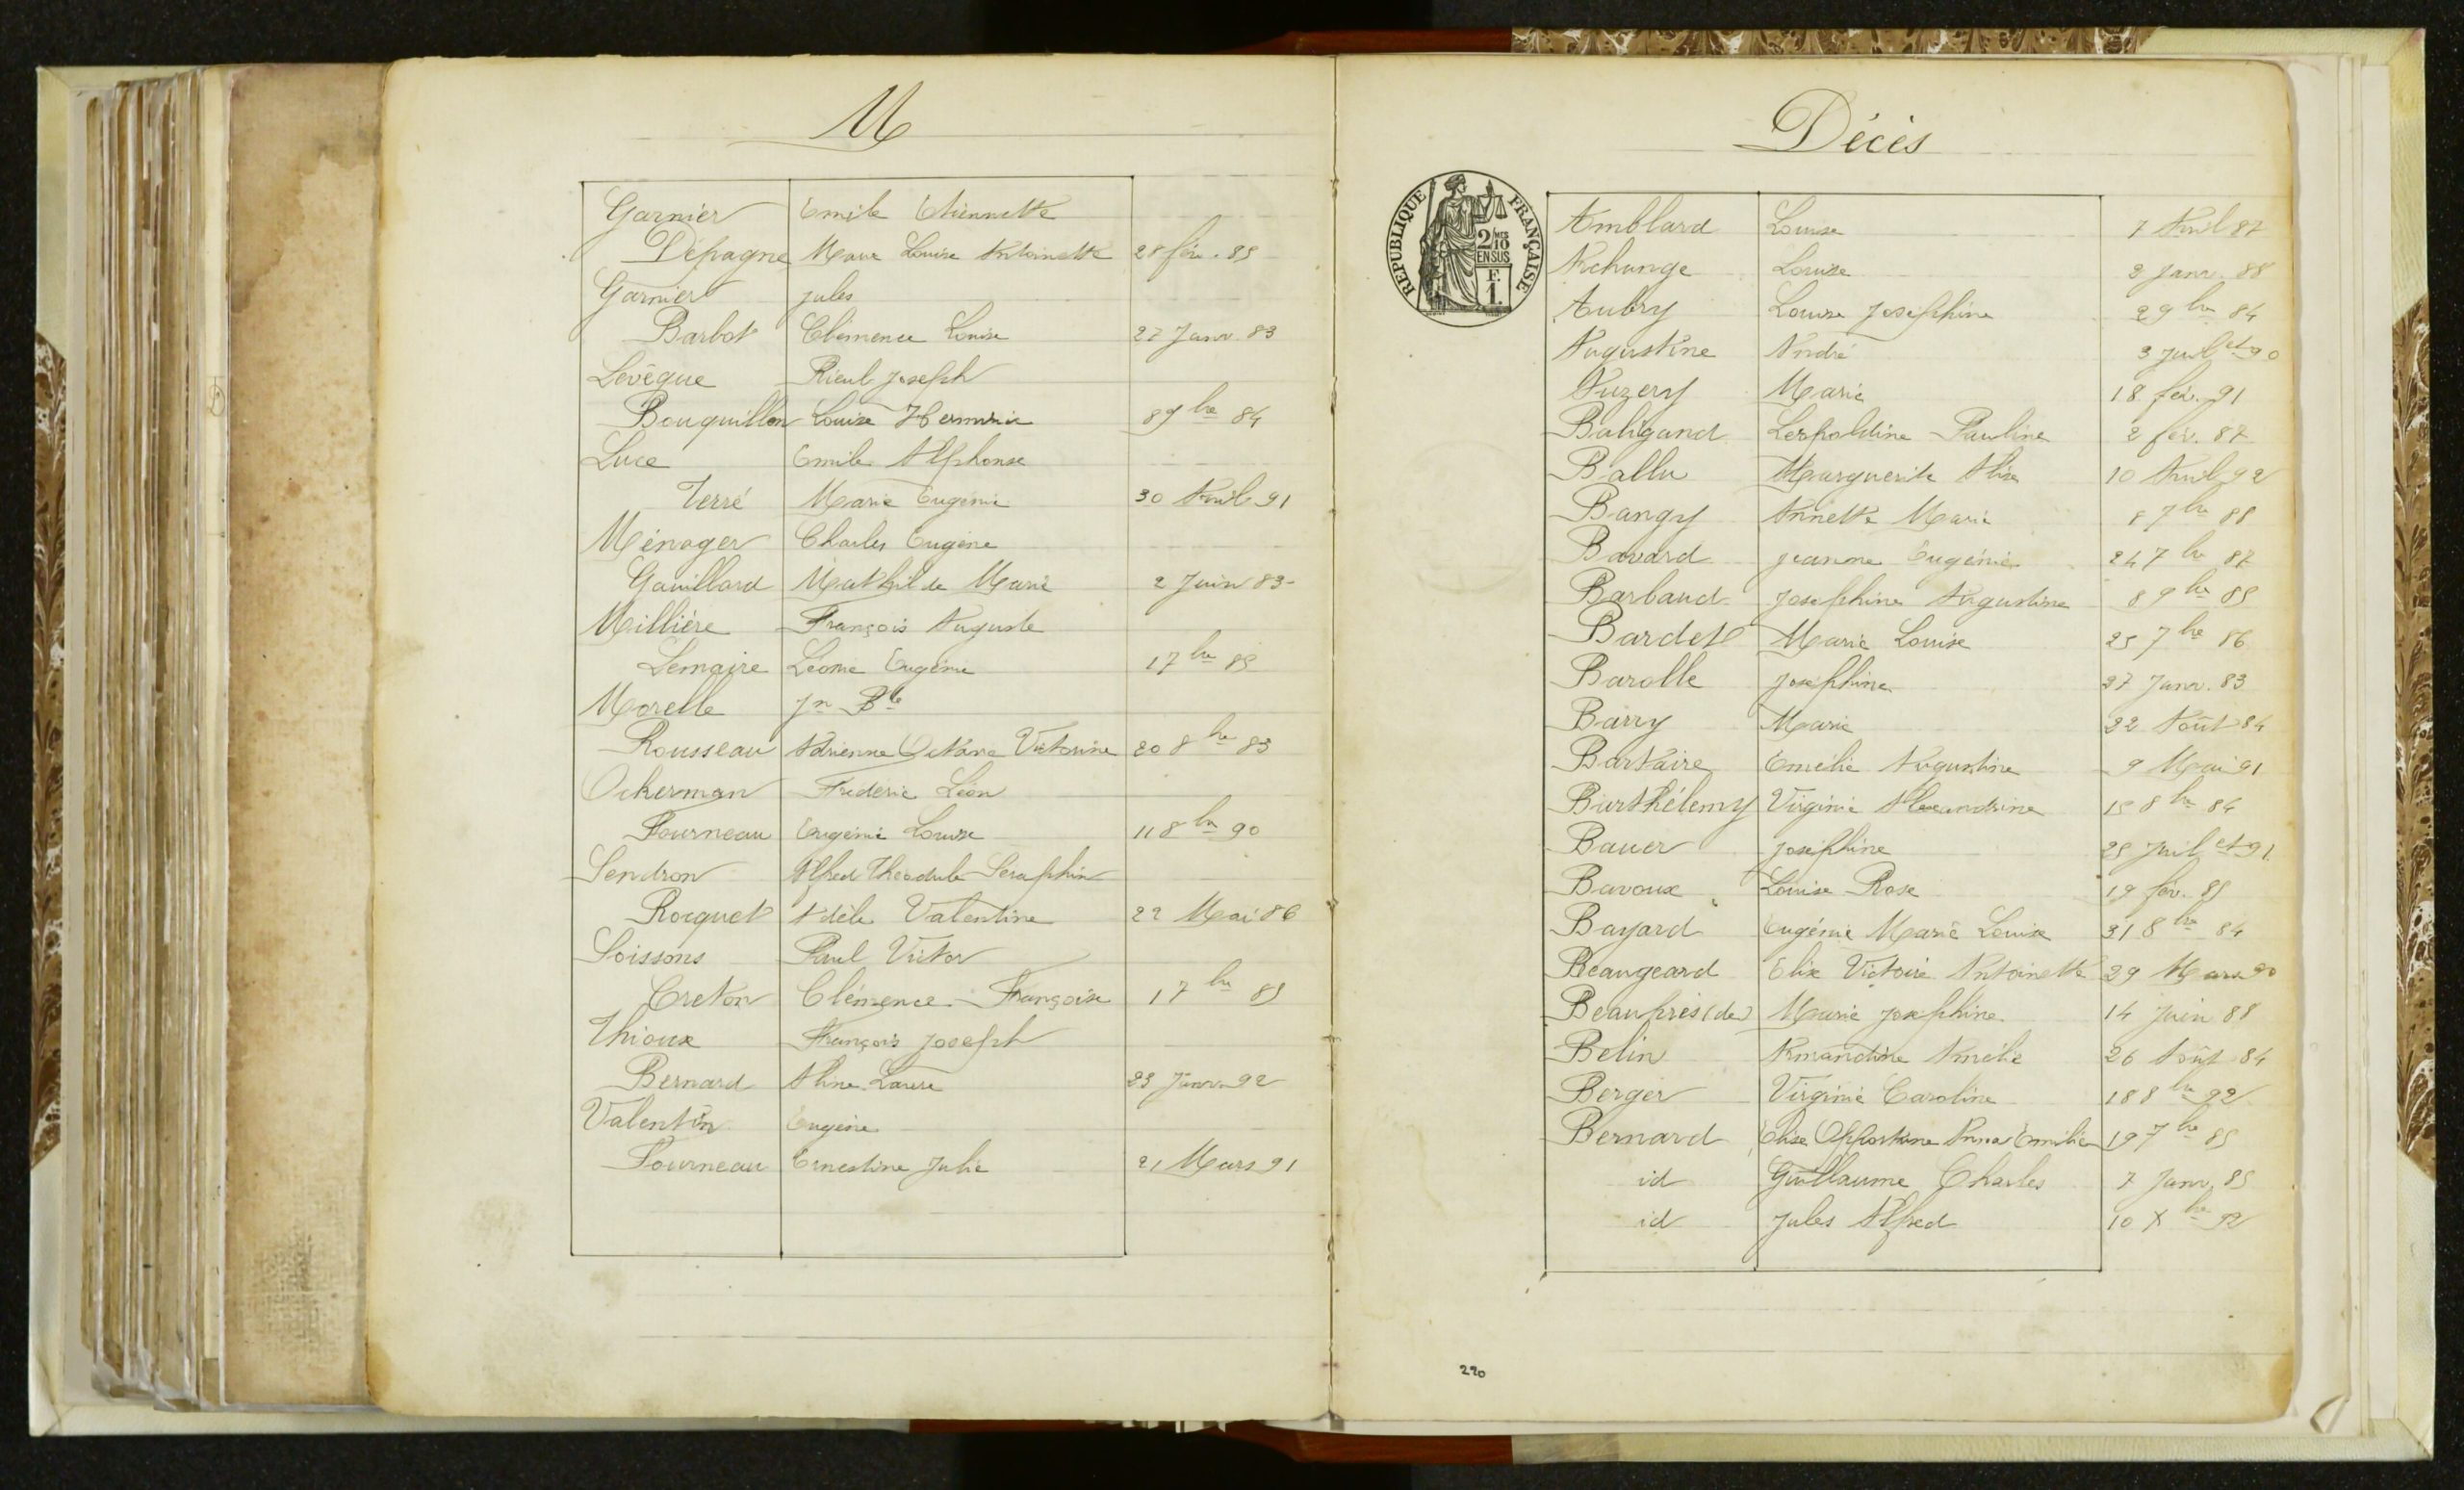 M
Garnier Emile Etiennette
Dépagne Marie Louise Antoinette 28 fév. 85
Garnier Jules
Barbot Clémence Louise 27 Janv. 83
Levêque Rieul Joseph
Bouquillon Louise Herminie 8 9bre 84
Luce Emile Alphonse
Terré Marie Eugénie 30 Avril 91
Ménager Charles Eugène
Gouillard Mathilde Marie 2 Juin 83
Millière François Auguste
Lemaire Léonie Eugénie 1 7bre 85
Morelle Jn Bte
Rousseau Adrienne Octavie Victorine 20 8bre 83
Ockerman Frédéric Léon
Fourneau Eugénie Louise 11 8bre 90
Sendron Alfred Théodule Séraphin
Rocquet Adèle Valentine 22 Mai 86
Soissons Paul Victor
Creton Clémence Françoise 1 7bre 85
Thioux François Joseph
Bernard Aline Laure 23 Janv. 92
Valentin Eugène
Fourneau Ernestine Julie 21 Mars 91
Décès
REPUBLIQUE FRANÇAISE
2/10 EN SUS
F. 1.
Amblard Louise 7 Avril 87
Archunge Louise 2 Janv. 88
Aubry Louise Joséphine 2 9bre 84
Augustine André 3 Juillet 90
Auzery Marie 18 fév. 91
Baligand Léopoldine Pauline 2 fév. 87
Ballu Marguerite Alice 10 Avril 92
Bangy Annette Marie 8 7bre 88
Bavard Jeanne Eugénie 24 7bre 87
Barbaud Joséphine Augustine 8 9bre 85
Bardet Marie Louise 25 7bre 86
Barolle Joséphine 27 Janv. 83
Barry Marie 22 Août 84
Bartaire Emélie Augustine 9 Mai 91
Barthélemy Virginie Alexandrine 15 8bre 84
Bauer Joséphine 25 Juillet 91
Bavoux Louise Rose 19 fév. 85
Bayard Eugénie Marie Louise 31 8bre 84
Beaugeard Elix Victoire Antoinette 29 Mars 90
Beauprès (de) Marie Joséphine 14 Juin 88
Belin Amandine Amélie 26 Août 84
Berger Virginie Caroline 18 8bre 92
Bernard Elise Opportune Anna Emilie 19 7bre 85
id Guillaume Charles 7 Janv. 85
id Jules Alfred 10 Xbre 92
220